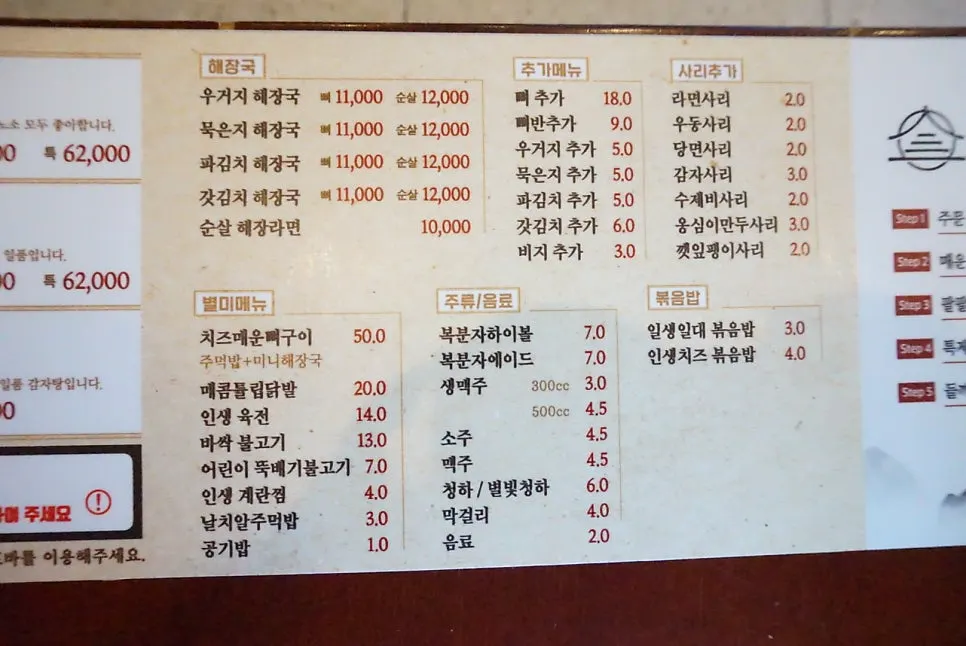 노소 모두 좋아합니다.
00 특 62,000
일품입니다.
00 특 62,000
일품 감자탕입니다.
00
주세요
이용해주세요.
해장국
우거지 해장국 뼈 11,000 순살 12,000
묵은지 해장국 뼈 11,000 순살 12,000
파김치 해장국 뼈 11,000 순살 12,000
갓김치 해장국 뼈 11,000 순살 12,000
순살 해장라면 10,000
추가메뉴
뼈 추가 18.0
뼈반추가 9.0
우거지 추가 5.0
묵은지 추가 5.0
파김치 추가 5.0
갓김치 추가 6.0
비지 추가 3.0
사리추가
라면사리 2.0
우동사리 2.0
당면사리 2.0
감자사리 3.0
수제비사리 2.0
옹심이만두사리 3.0
깻잎팽이사리 2.0
별미메뉴
치즈매운뼈구이 50.0
주먹밥+미니해장국
매콤틀립닭발 20.0
인생 육전 14.0
바싹 불고기 13.0
어린이 뚝배기불고기 7.0
인생 계란찜 4.0
날치알주먹밥 3.0
공기밥 1.0
주류/음료
복분자하이볼 7.0
복분자에이드 7.0
생맥주 300cc 3.0
500cc 4.5
소주 4.5
맥주 4.5
청하 / 별빛청하 6.0
막걸리 4.0
음료 2.0
볶음밥
일생일대 볶음밥 3.0
인생치즈 볶음밥 4.0
Step 1 주문
Step 2 매운
Step 3 팔팔
Step 4 특제
Step 5 들깨